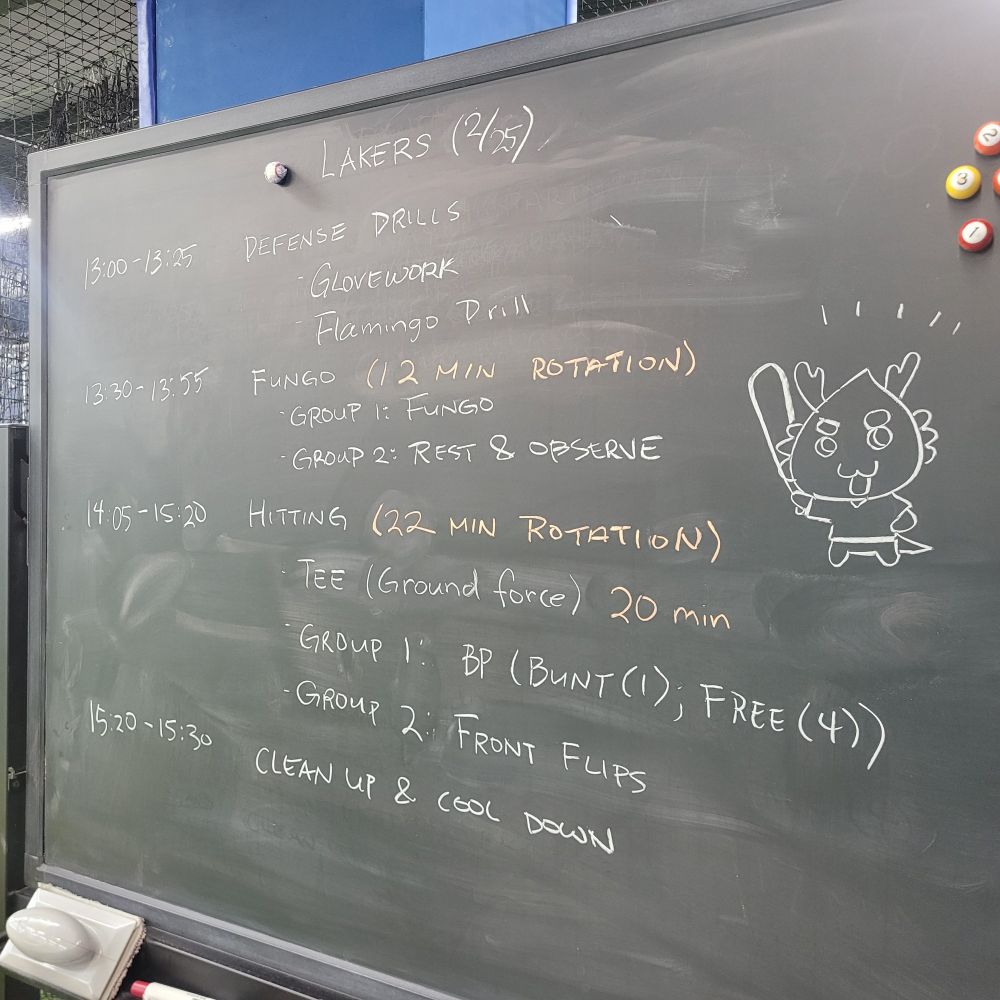 LAKERS (2/25)
13:00-13:25 DEFENSE DRILLS
- GLOVEWORK
- Flamingo Drill
13:30-13:55 FUNGO (12 MIN ROTATION)
- GROUP 1: FUNGO
- GROUP 2: REST & OBSERVE
14:05-15:20 HITTING (22 MIN ROTATION)
- TEE (Ground force) 20 min
- GROUP 1: BP (BUNT(1); FREE(4))
- GROUP 2: FRONT FLIPS
15:20-15:30 CLEAN UP & COOL DOWN
2
3
1